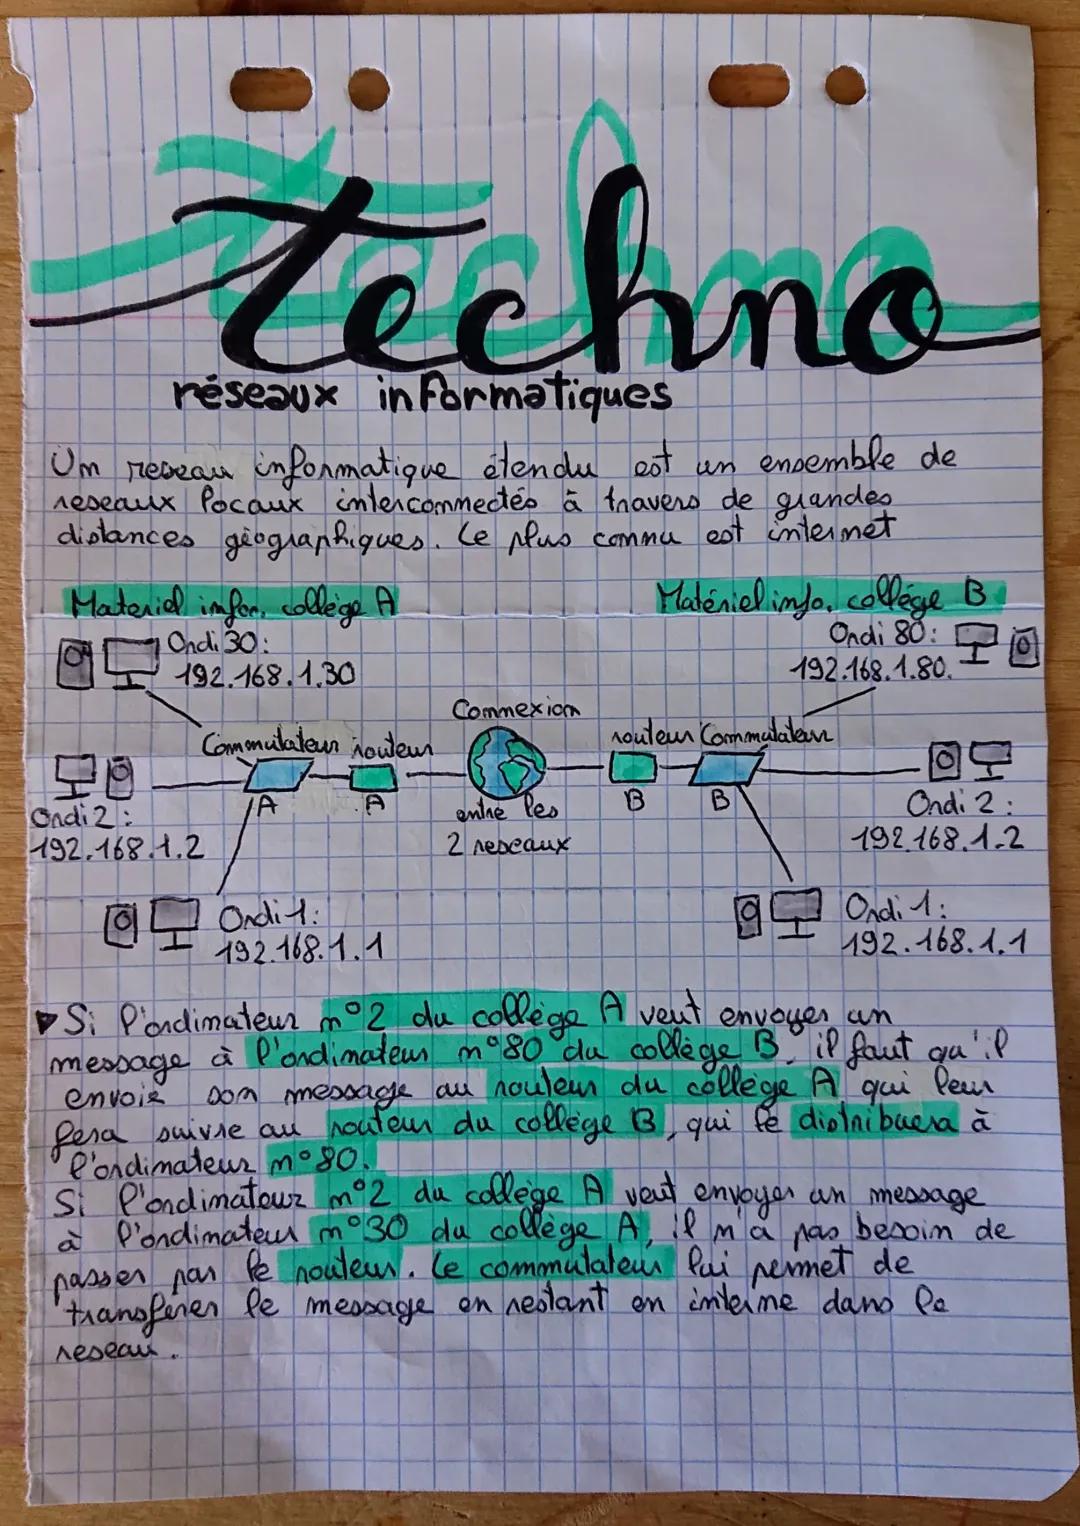 techno
réseaux informatiques
Un reseau informatique étendu est un ensemble de
reseaux locaux interconnectés à travers de grandes
distances géographiques. Le plus connu est internet
Materiel infor. collège A
Matériel info. collège B
Ondi 30:
192.168.1.30
Ondi 80:
192.168.1.80.
Connexion
Commutateur routeur
routeur Commutateur
A
A
B
B
entre les
2 reseaux
Ondi 2:
192.168.1.2
Ondi 2:
192.168.1.2
Ondi 1:
192.168.1.1
Ondi 1:
192.168.1.1
Si l'ordinateur n°2 du collège A veut envoyer un
message à l'ordinateur n°80 du collège B, il faut qu'il
envoie son message au routeur du collège A qui leur
fera suivre au routeur du collège B, qui le distribuera à
l'ordinateur n°80.
Si l'ordinateur n°2 du collège A veut envoyer un message
à l'ordinateur n°30 du collège A, il n'a pas besoin de
passer par le routeur. Le commutateur lui permet de
transferer le message en restant en interne dans le
reseau.